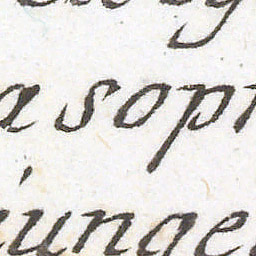 a sopr
iunge